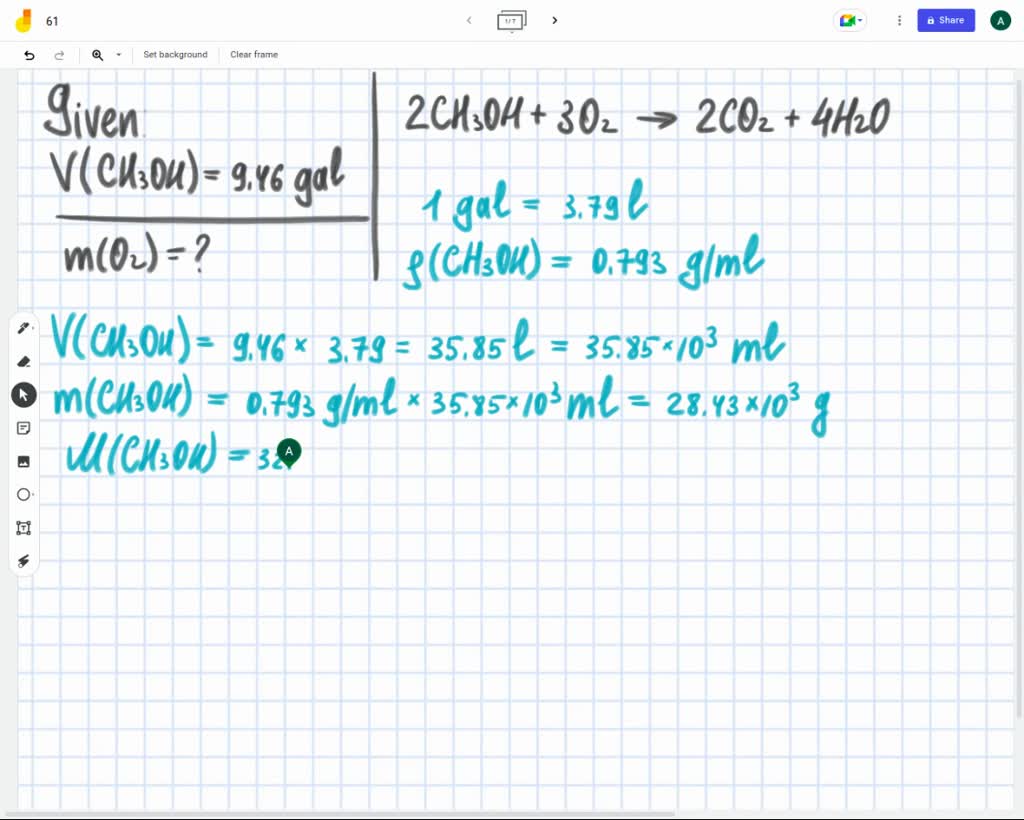 61
1/7
Share
A
Set background
Clear frame
Given:
V(CH₃OH) = 9.46 gal
m(O₂) = ?
2CH₃OH + 3O₂ → 2CO₂ + 4H₂O
1 gal = 3.79 l
ρ(CH₃OH) = 0.793 g/ml
V(CH₃OH) = 9.46 × 3.79 = 35.85 l = 35.85×10³ ml
m(CH₃OH) = 0.793 g/ml × 35.85×10³ ml = 28.43×10³ g
M(CH₃OH) = 32
A